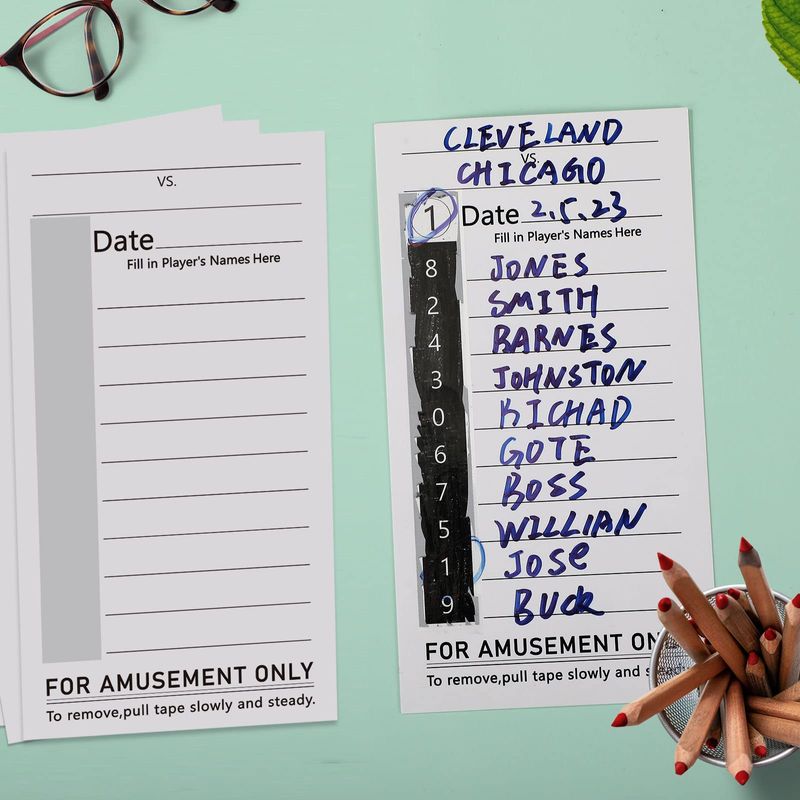 VS.
Date
Fill in Player's Names Here
FOR AMUSEMENT ONLY
To remove,pull tape slowly and steady.
CLEVELAND
VS.
CHICAGO
1 Date 2.5.23
Fill in Player's Names Here
8 JONES
2 SMITH
4 BARNES
3 JOHNSTON
0 RICHAD
6 GOTE
7 BOSS
5 WILLIAN
1 JOSe
9 BUck
FOR AMUSEMENT ON
To remove,pull tape slowly and s